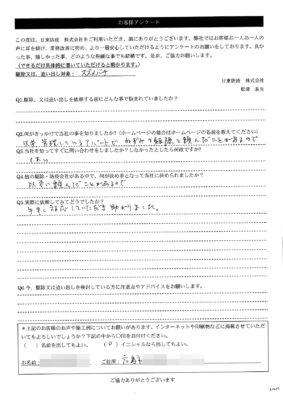 お客様アンケート
この度は、日東防疫 株式会社をご利用いただき、誠にありがとうございます。弊社ではお客様お一人お一人の
声に耳を傾け、業務改善に努め、より一層安心していただけるようにアンケートのお願いをしております。良か
った事、嬉しかった事、どのような些細な事でも結構です。是非、ご協力お願いします。
(できるだけ具体的に書いていただけると助かります。)
駆除又は、追い出し対象： スズメバチ
日東防疫 株式会社
Q1.駆除、又は追い出しを依頼する前にどんな事で悩まれていましたか？
Q2.何がきっかけで当社の事を知りましたか？(ホームページの場合はホームページの名前を教えてください)
以前 管理しているアパートで ねずみの駆除を頼んだことがあるので
Q3.当社を知ってすぐに問い合わせをしましたか？しなかったとしたら何故ですか？
はい
Q4.他の駆除・防疫会社がある中で、何が決め手となって当社に決められましたか？
以前に頼んだことがあるので
Q5.実際に依頼してみてどうでしたか？
していただき助かりました。
Q6.今、駆除又は追い出しを検討している方に注意点やアドバイスをお願いします。
＊上記のお客様のお声や施工例についてお願いがあります。インターネットや印刷物などに掲載させていただ
いてもよろしいでしょうか？下記の中から○印をお付けください。
( ) 名前を出してもよい。 (○) イニシャルなら出してもよい。
お名前： ご住所： 広島市
ご協力ありがとうございます